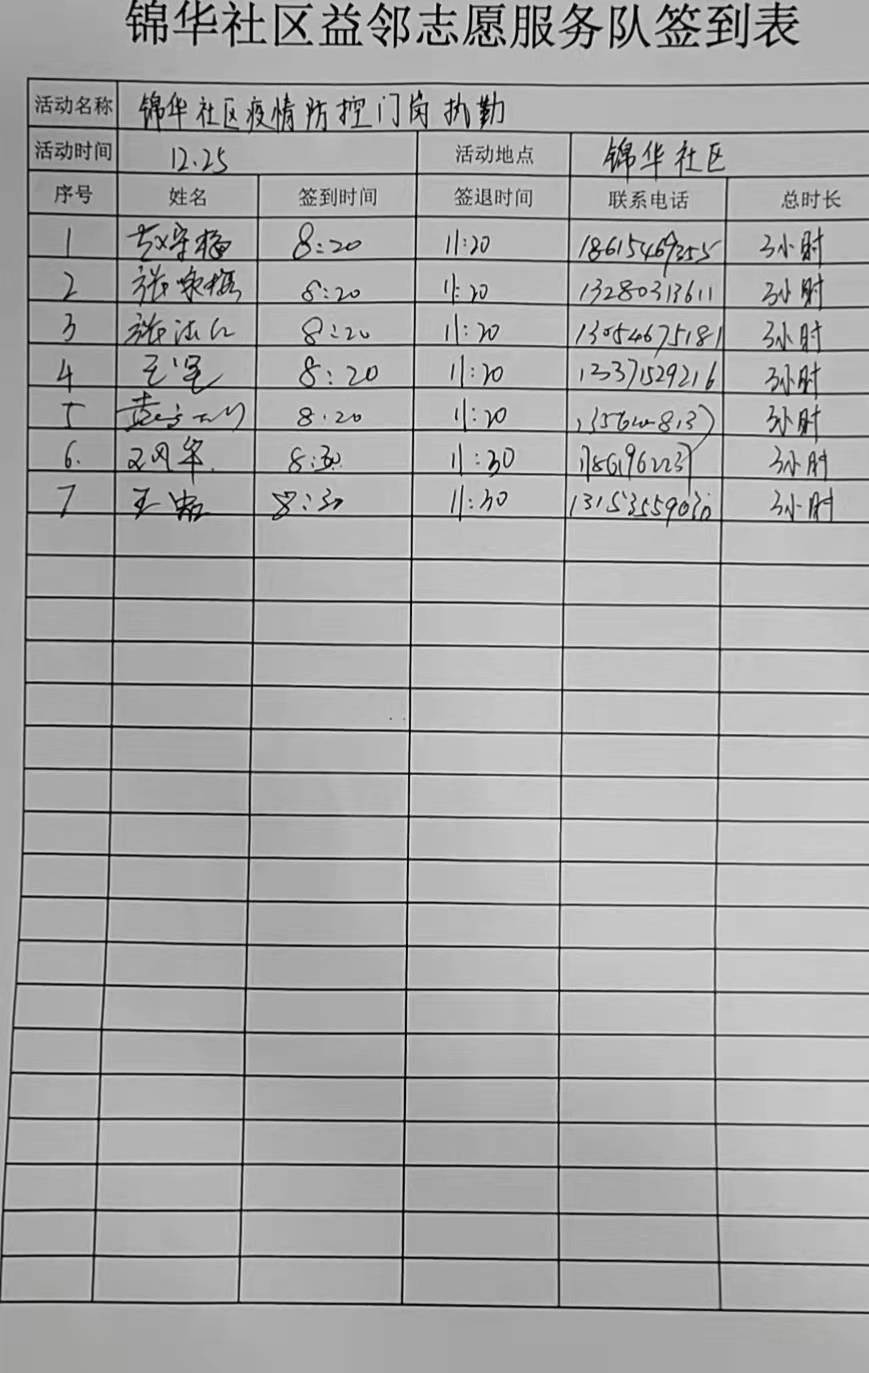 锦华社区益邻志愿服务队签到表
活动名称 锦华社区疫情防控门岗执勤
活动时间 12.25 活动地点 锦华社区
序号 姓名 签到时间 签退时间 联系电话 总时长
1 8:20 11:20 18615469355 3小时
2 8:20 11:20 13280313611 3小时
3 8:20 11:20 13054675181 3小时
4 8:20 11:20 13371529216 3小时
5 8.20 11:20 3小时
6. 8:30 11:30 3小时
7 8:30 11:30 3小时